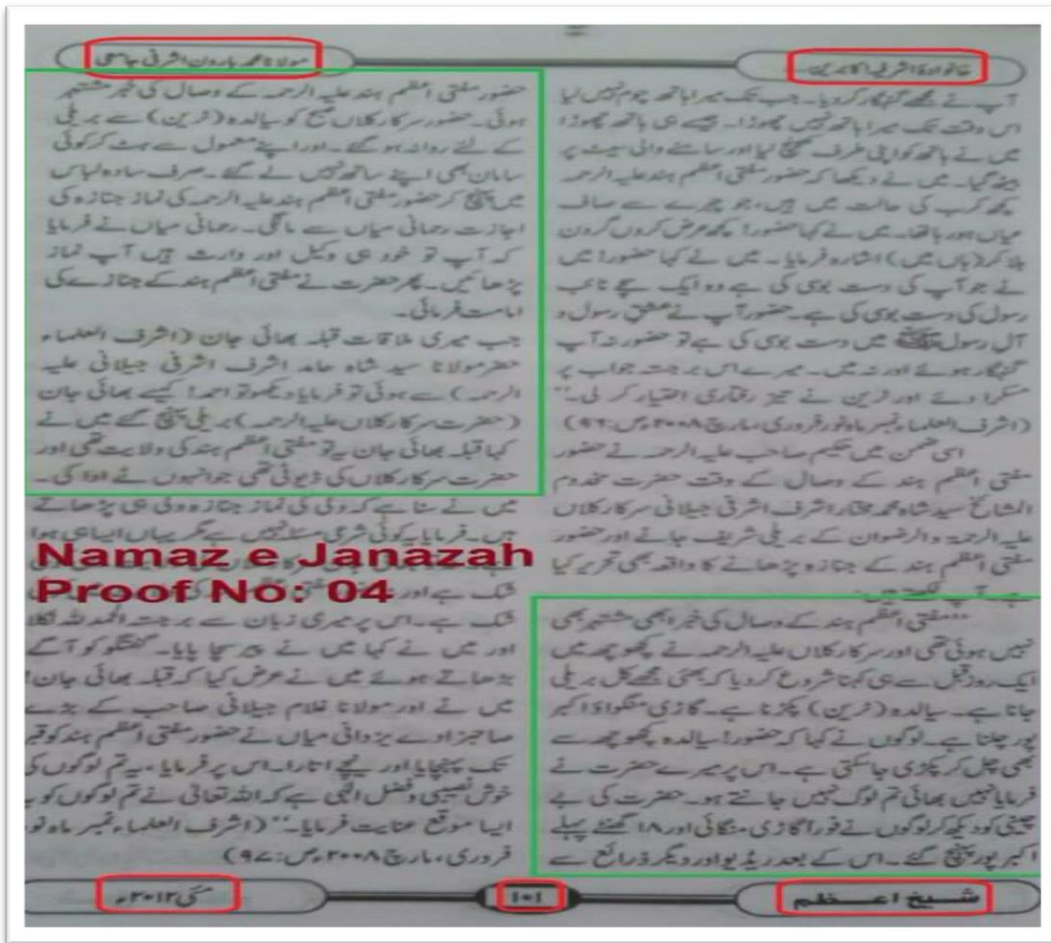 خانوادۂ اشرفیہ اکابرین
مولانا محمد ہارون اشرفی جامعی
آپ نے مجھے گنہگار کر دیا۔ جب تک میرا ہاتھ چوم نہیں لیا
اس وقت تک میرا ہاتھ نہیں چھوڑا۔ جیسے ہی ہاتھ چھوڑا
میں نے ہاتھ کو اپنی طرف کھینچ لیا اور سامنے والی سیٹ پر
بیٹھ گیا۔ میں نے دیکھا کہ حضور مفتی اعظم ہند علیہ الرحمہ
کچھ کرب کی حالت میں ہیں، جو چہرے سے صاف
عیاں ہو رہا تھا۔ میں نے کہا حضور! کچھ عرض کروں گردن
ہلا کر (ہاں میں) اشارہ فرمایا۔ میں نے کہا حضور! میں
نے جو آپ کی دست بوسی کی ہے وہ ایک سچے نائب
رسول کی دست بوسی کی ہے۔ حضور آپ نے عشق رسول و
آل رسول ﷺ میں دست بوسی کی ہے تو حضور نہ آپ
گنہگار ہوئے اور نہ میں۔ میرے اس برجستہ جواب پر
مسکرا دئے اور ٹرین نے تیز رفتاری اختیار کر لی۔‘‘
(اشرف العلماء نمبر ماہ نور فروری، مارچ ۲۰۰۸ء ص: ۹۶)
اسی ضمن میں حکیم صاحب علیہ الرحمہ نے حضور
مفتی اعظم ہند کے وصال کے وقت حضرت مخدوم
المشائخ سید شاہ محمد مختار اشرف اشرفی جیلانی سرکار کلاں
علیہ الرحمۃ والرضوان کے بریلی شریف جانے اور حضور
مفتی اعظم ہند کے جنازہ پڑھانے کا واقعہ بھی تحریر کیا
ہے۔ آپ لکھتے ہیں:
’’مفتی اعظم ہند کے وصال کی خبر ابھی مشتہر بھی
نہیں ہوئی تھی اور سرکار کلاں علیہ الرحمہ نے کچھوچھہ میں
ایک روز قبل سے ہی کہنا شروع کر دیا کہ بھئی مجھے کل بریلی
جانا ہے۔ سیالدہ (ٹرین) پکڑنا ہے۔ گاڑی منگواؤ اکبر
پور چلنا ہے۔ لوگوں نے کہا کہ حضور! سیالدہ کچھوچھہ سے
بھی چل کر پکڑی جا سکتی ہے۔ اس پر میرے حضرت نے
فرمایا نہیں بھائی تم لوگ نہیں جانتے ہو۔ حضرت کی بے
چینی کو دیکھ کر لوگوں نے فوراً گاڑی منگائی اور ۱۸ گھنٹے پہلے
اکبر پور پہنچ گئے۔ اس کے بعد ریڈیو اور دیگر ذرائع سے
حضور مفتی اعظم ہند علیہ الرحمہ کے وصال کی خبر مشتہر
ہوئی۔ حضور سرکار کلاں صبح کو سیالدہ (ٹرین) سے بریلی
کے لئے روانہ ہو گئے۔ اور اپنے معمول سے ہٹ کر کوئی
سامان بھی اپنے ساتھ نہیں لے گئے۔ صرف سادہ لباس
میں پہنچ کر حضور مفتی اعظم ہند علیہ الرحمہ کی نماز جنازہ کی
اجازت رحمانی میاں سے مانگی۔ رحمانی میاں نے فرمایا
کہ آپ تو خود ہی وکیل اور وارث ہیں آپ نماز
پڑھائیں۔ پھر حضرت نے مفتی اعظم ہند کے جنازے کی
امامت فرمائی۔
جب میری ملاقات قبلہ بھائی جان (اشرف العلماء
حضرمولانا سید شاہ حامد اشرف اشرفی جیلانی علیہ
الرحمہ) سے ہوئی تو فرمایا دیکھو تو احمد! کیسے بھائی جان
(حضرت سرکار کلاں علیہ الرحمہ) بریلی پہنچ گئے میں نے
کہا قبلہ بھائی جان یہ تو مفتی اعظم ہند کی ولایت تھی اور
حضرت سرکار کلاں کی ڈیوٹی تھی جو انہوں نے ادا کی۔
میں نے سنا ہے کہ ولی کی نماز جنازہ ولی ہی پڑھاتے
ہیں۔ فرمایا یہ کوئی شرعی مسئلہ نہیں ہے مگر یہاں ایسا ہی ہوا
Namaz e Janazah
Proof No: 04
شک ہے اور
شک ہے۔ اس پر میری زبان سے برجستہ الحمد للہ نکلا
اور میں نے کہا میں نے پیر سچا پایا۔ گفتگو کو آگے
بڑھاتے ہوئے میں نے عرض کیا کہ قبلہ بھائی جان!
میں نے اور مولانا غلام جیلانی صاحب کے بڑے
صاحبزادے یزدانی میاں نے حضور مفتی اعظم ہند کو قبر
تک پہنچایا اور نیچے اتارا۔ اس پر فرمایا۔ یہ تم لوگوں کی
خوش نصیبی و فضل الٰہی ہے کہ اللہ تعالیٰ نے تم لوگوں کو یہ
ایسا موقع عنایت فرمایا۔‘‘ (اشرف العلماء نمبر ماہ نور
فروری، مارچ ۲۰۰۸ء ص: ۹۷)
شیخ اعظم
۱۰۱
مئی ۲۰۱۲ء